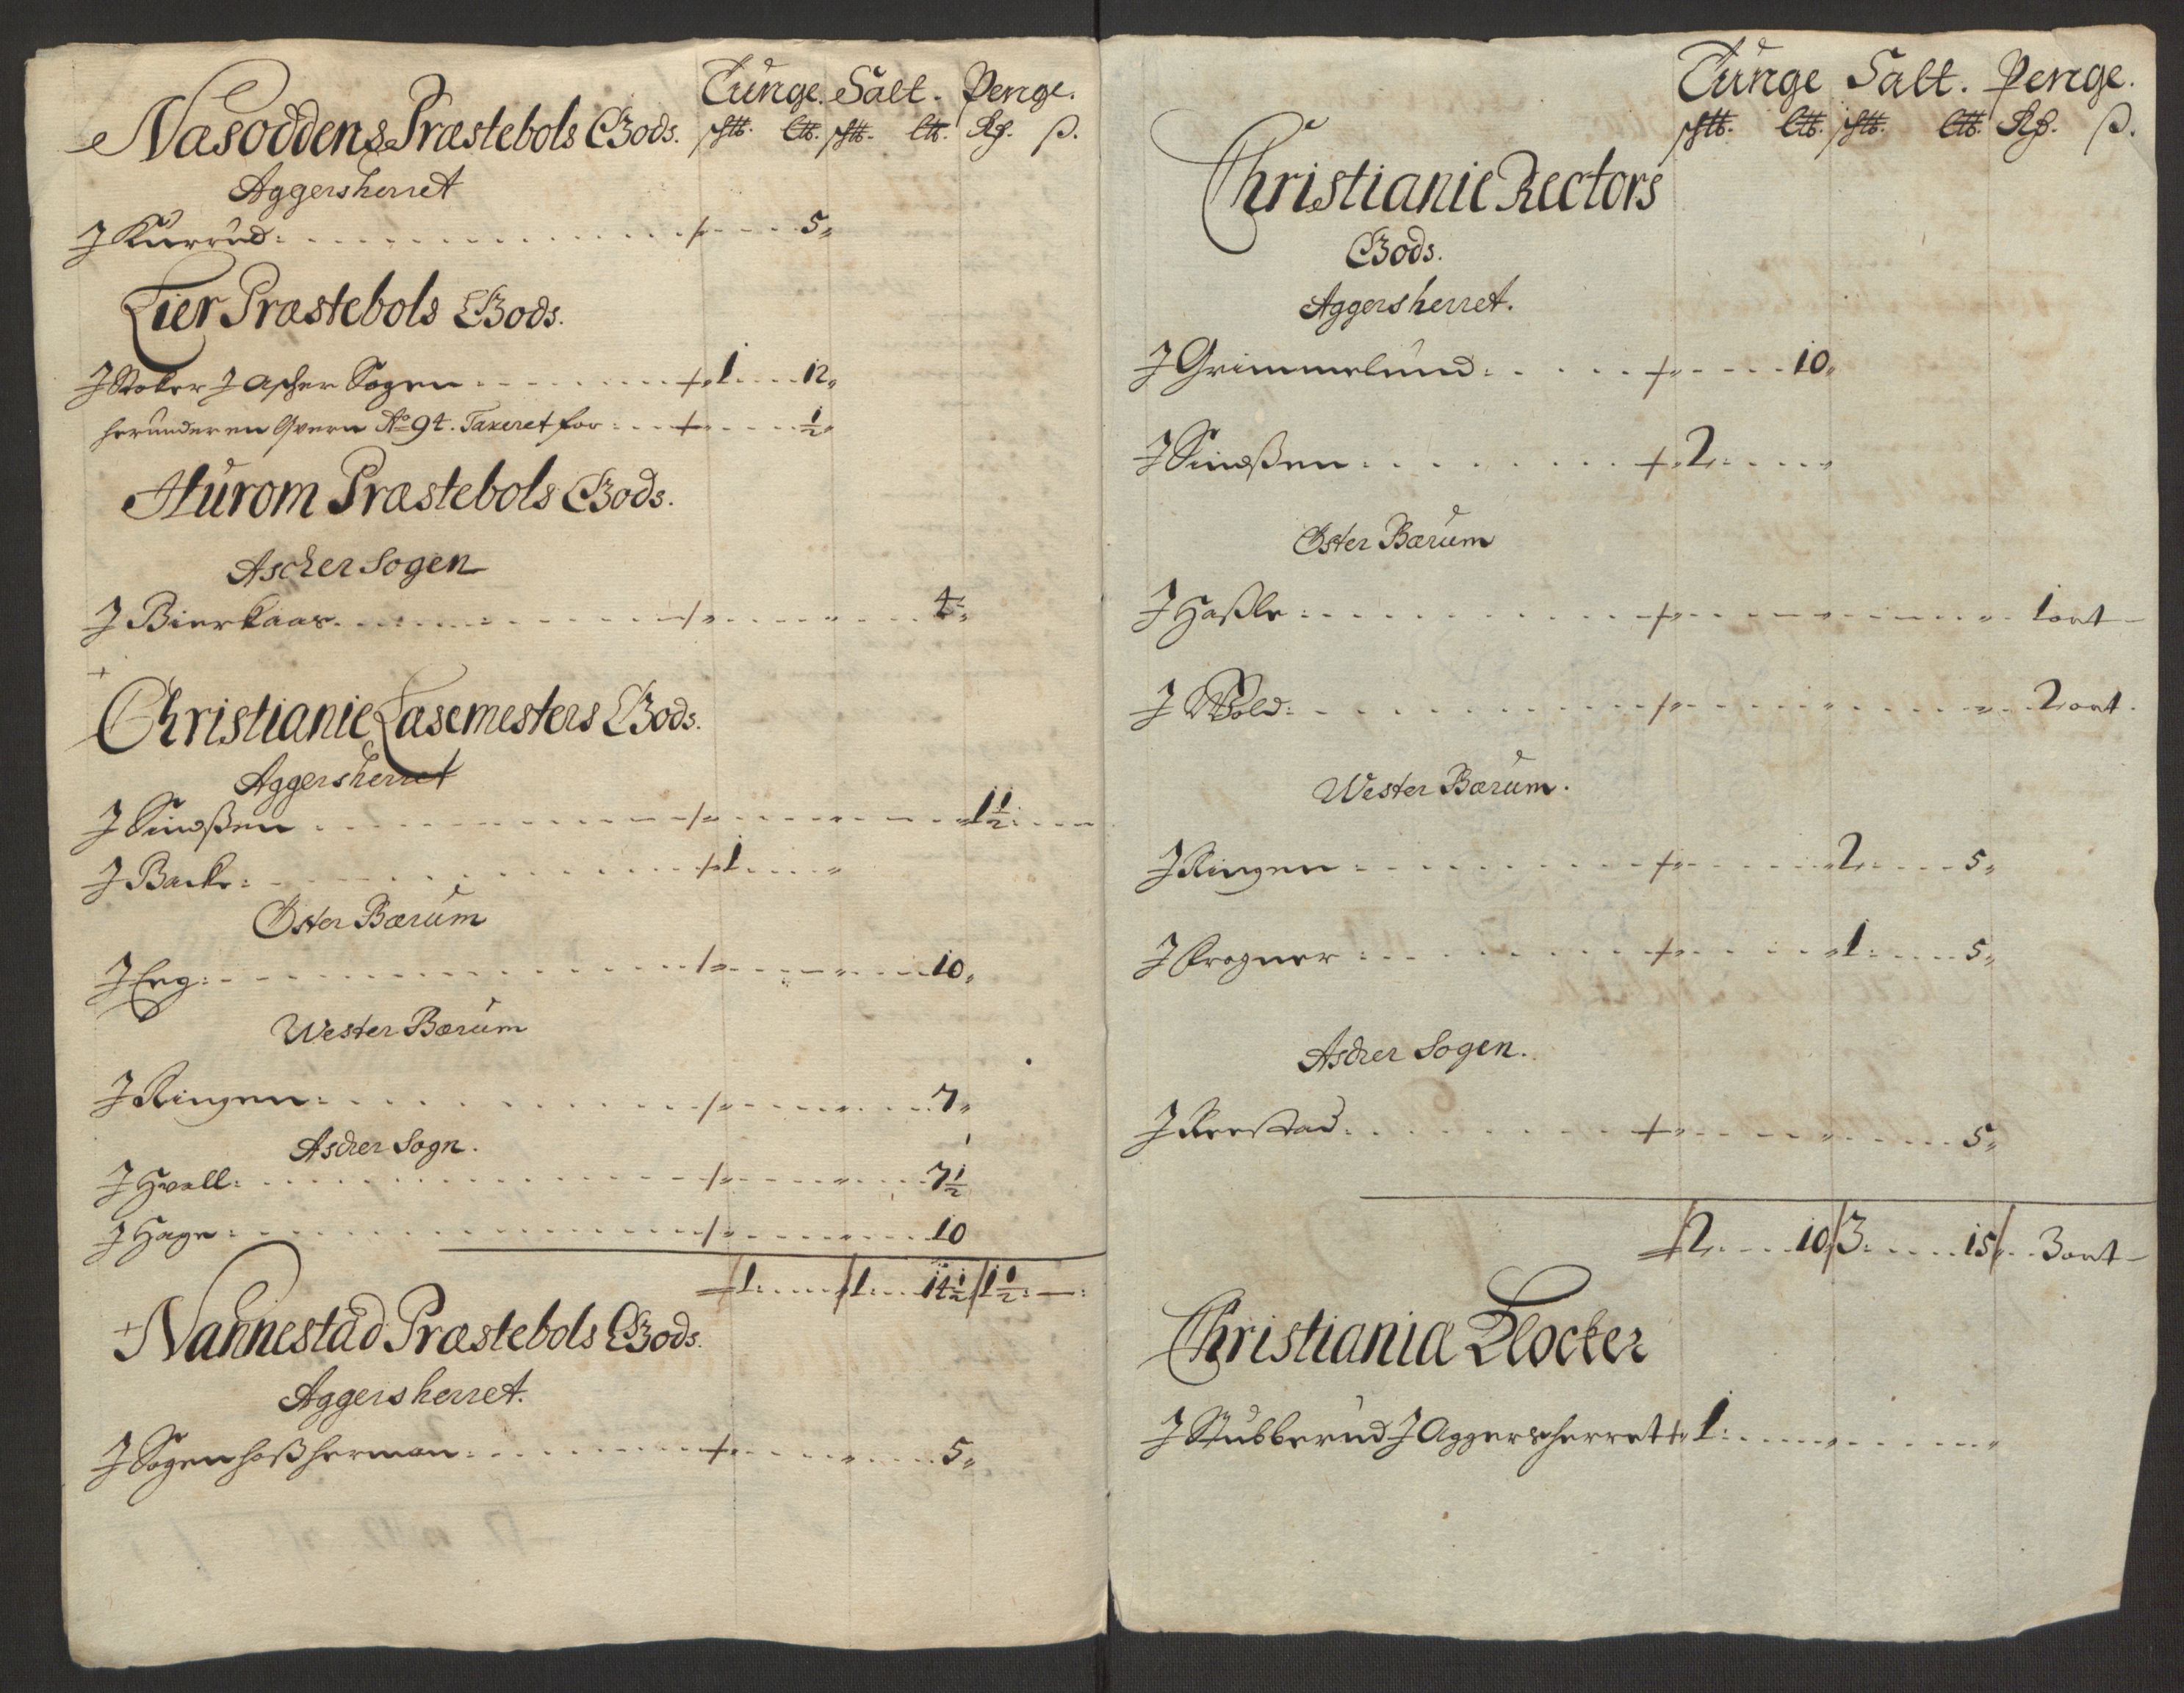 Tunge. Salt. Penge.
Næsoddens Præstebols Gods. sht℔. L℔. sht℔. L℔. Rß. ß.
Aggersherret
J Kurrud: 5„
Lier Præstebols Gods.
J Stoker J Ascher Sogen: 1. 12„
herunder en Qvern Ao 94. Taxeret for: ½„
Hurom Præstebols Gods.
Ascher Sogen
J Bierkaas. 4„
Christianie Læsemesters Gods.
Aggersherret
J Sindßen 1½:
J Backe: 1.
Øster Bærum
J Eng: 10„
Wester Bærum
J Ringen: 7„
Ascher Sogn.
J Hvall: 7½
J Hage: 10
1: 1: 14½ 1½: —:
Nannestad Præstebols Gods.
Aggersherret.
J Sogenhoßherman: 5„
Tunge Salt. Penge.
sht℔. L℔. sht℔. L℔. Rß. ß.
Christianie Rectors
Gods.
Aggersherret.
J Grimmelund: 10„
J Sindßen: 2.
Øster Bærum
J Haßle: 1 ort —
J Wold: 2 ort.
Wester Bærum.
J Ringen: 2. 5„
J Frogner: 1. 5„
Ascher Sogen.
J Reestad. 5„
2. 10 3: 15 3 ort —
Christiania Klocker
J Stubberud J Aggersherret 1: